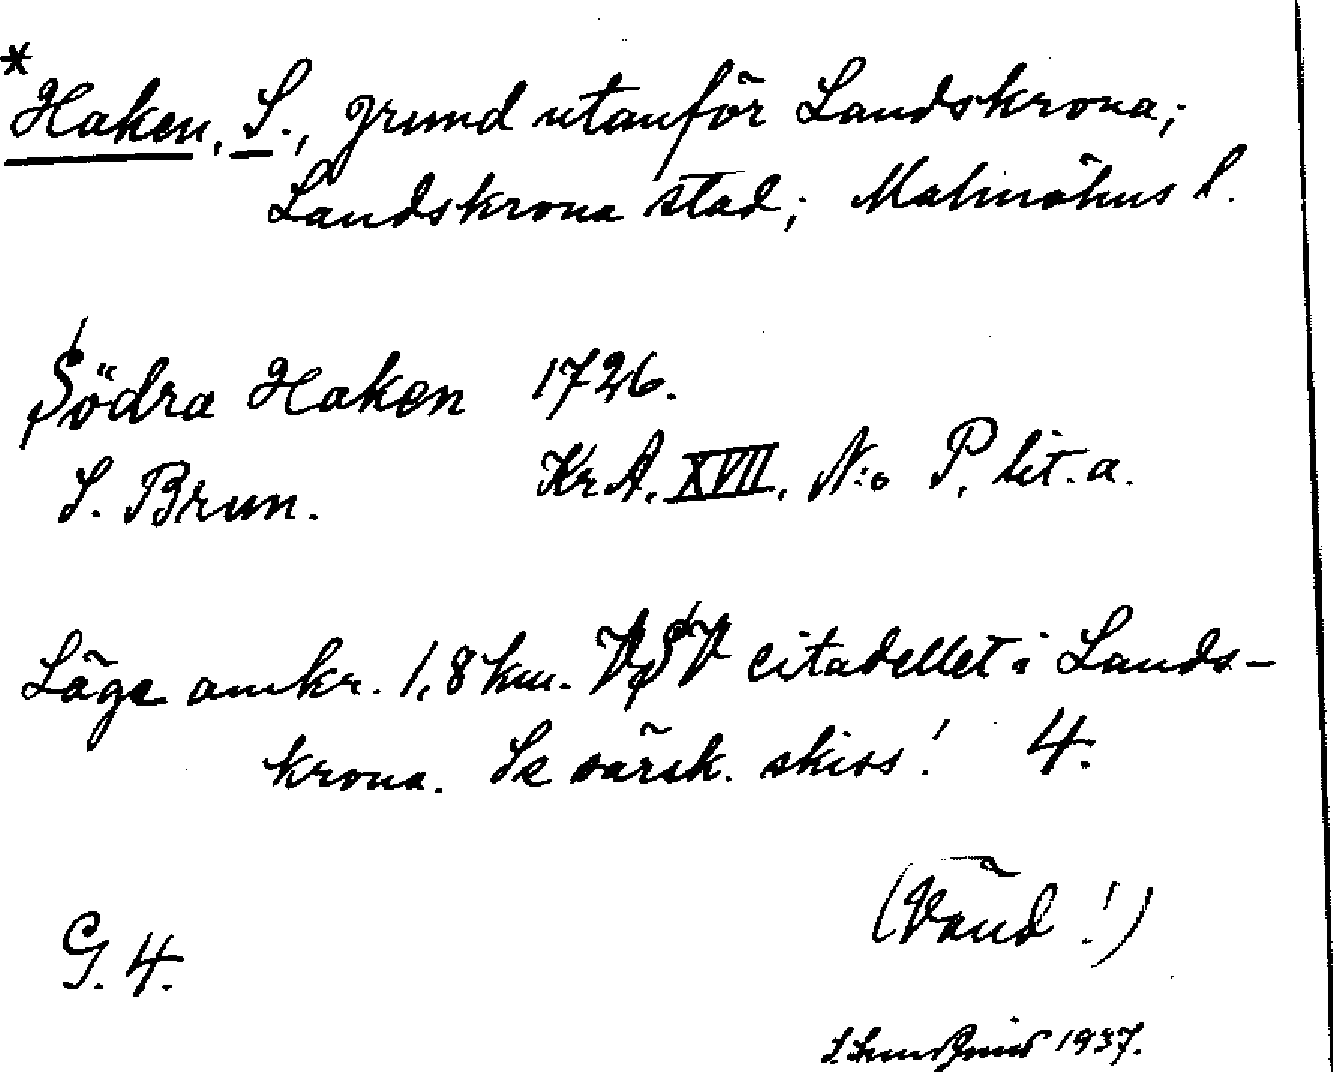 *Haken, S., grund utanför Landskrona;
Landskrona stad; Malmöhus l.
Södra Haken 1726.
S. Brun. KrA. XVII. N:o P. lit. a.
Läge omkr. 1,8 km. VSV citadellet i Lands-
krona. Se särsk. skiss! 4.
(Vänd!)
G. 4.
1937.